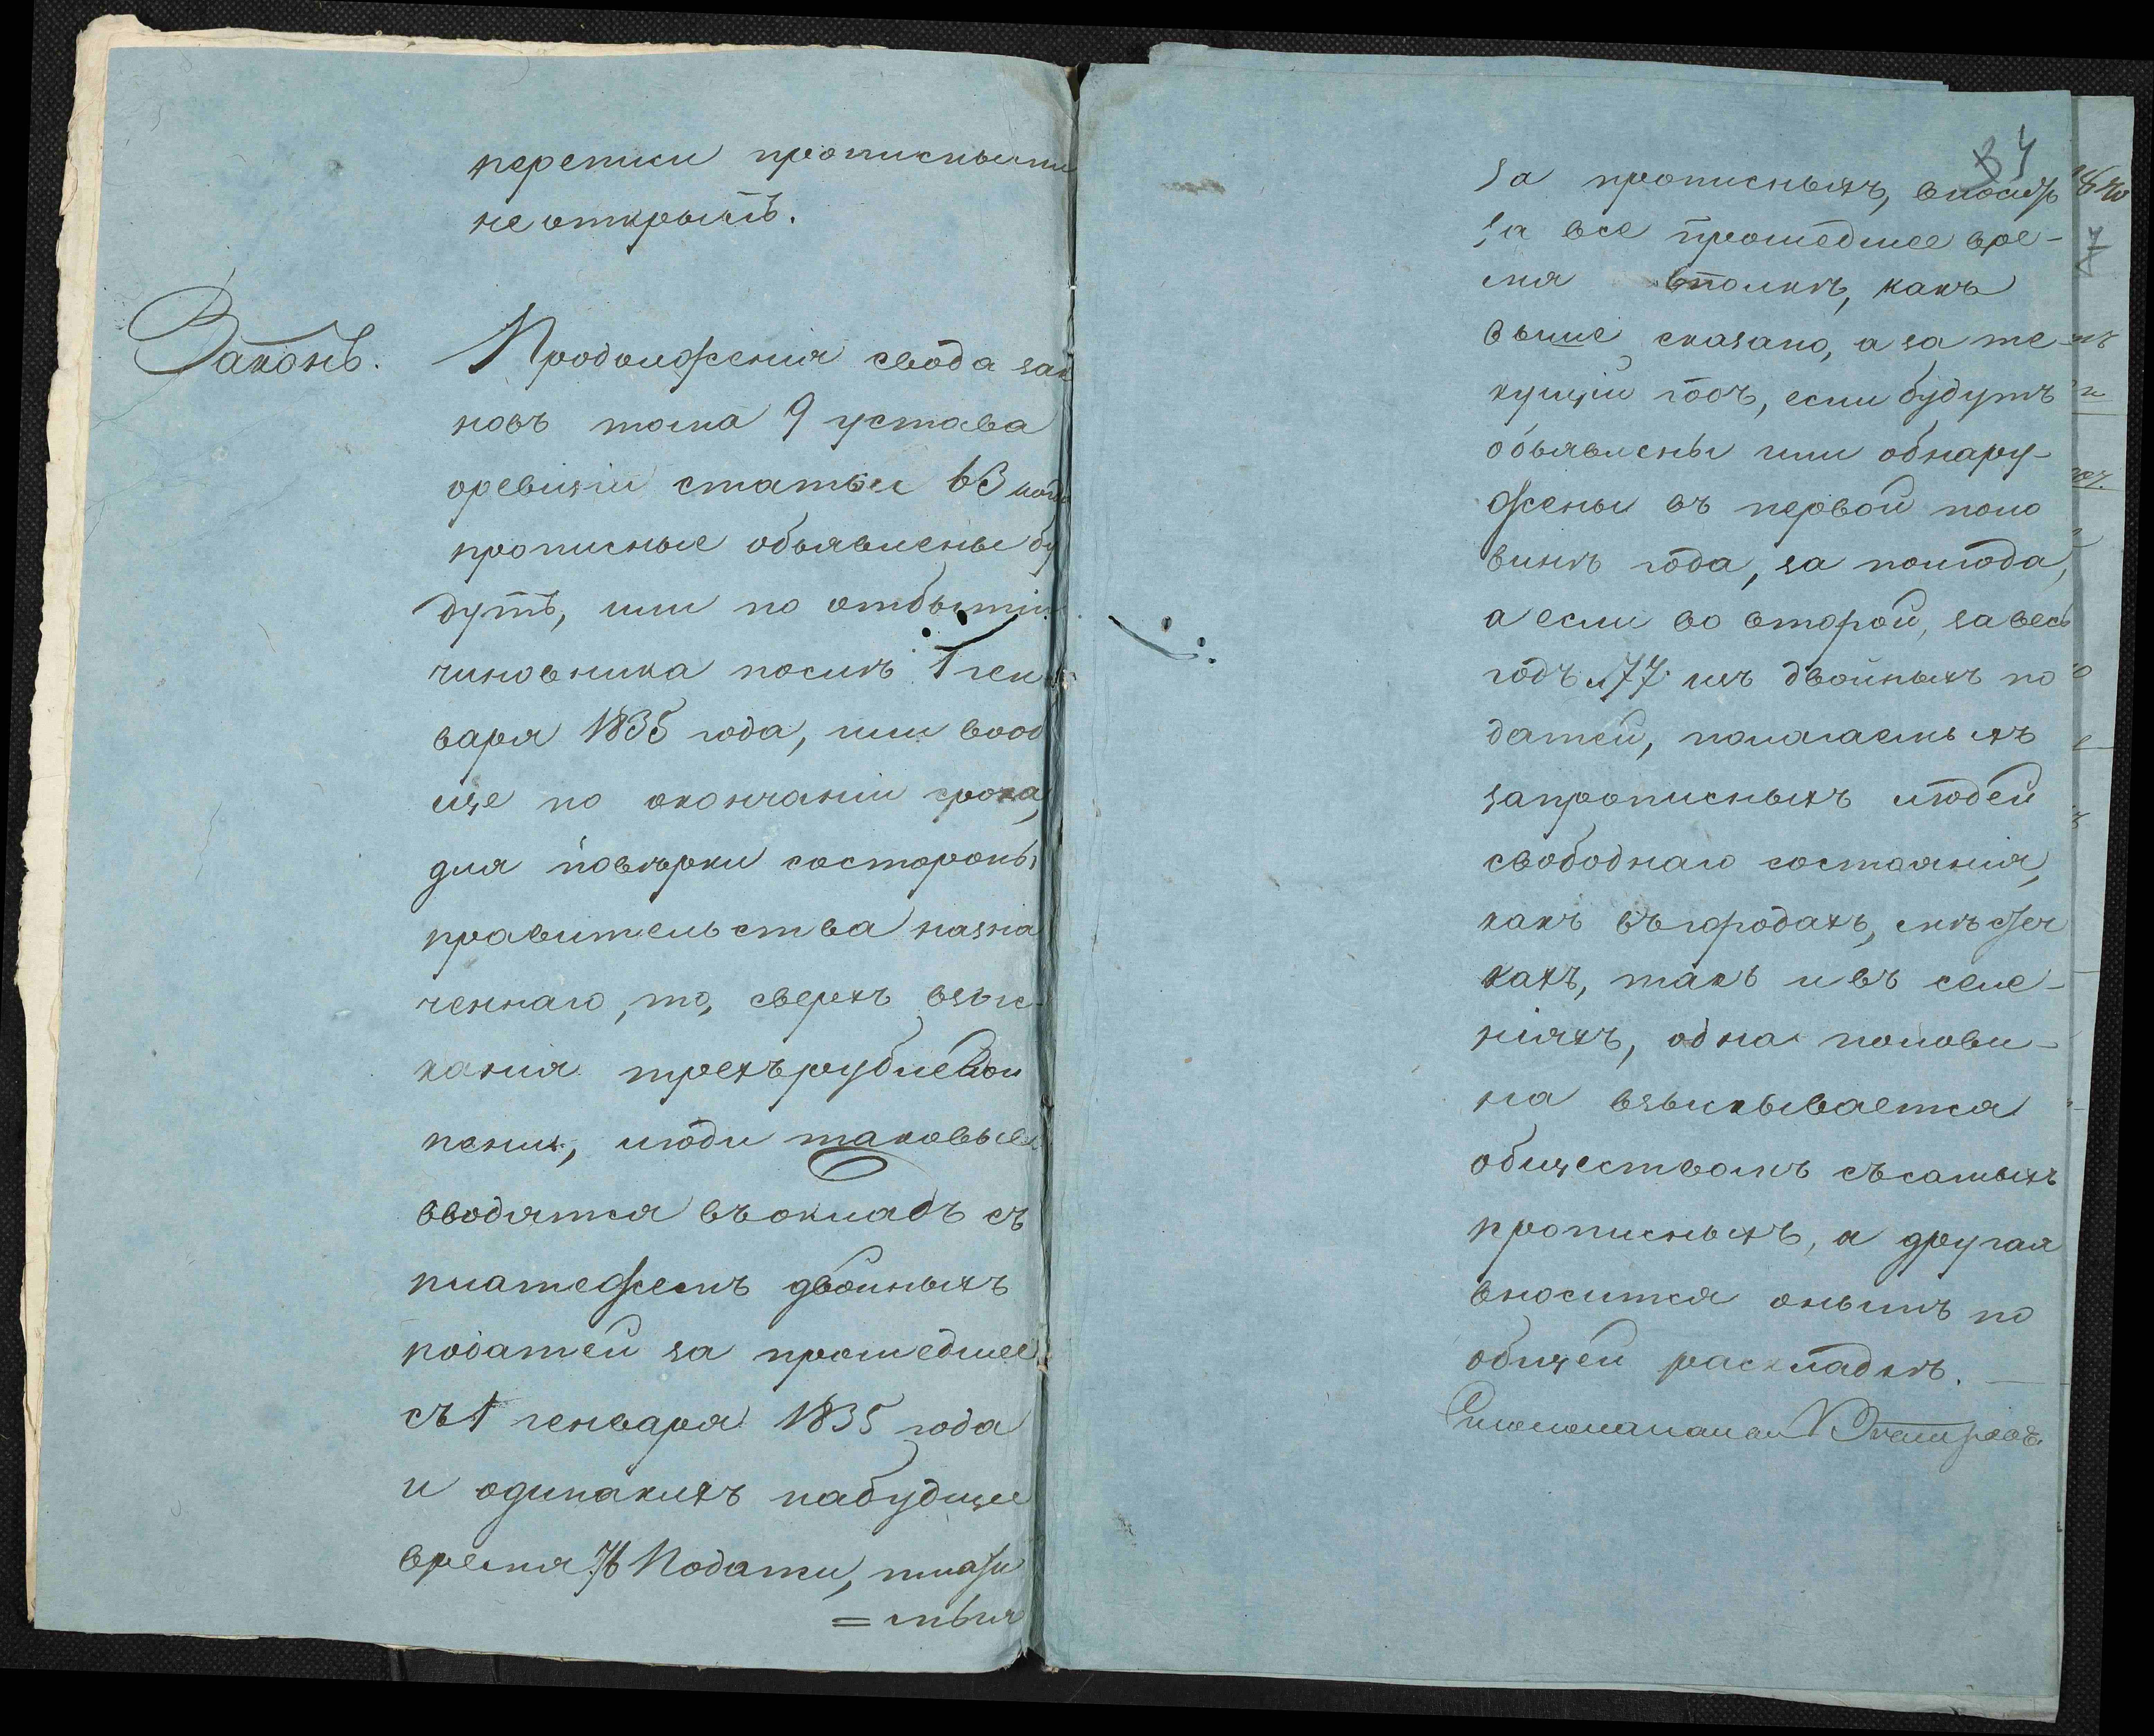 переписи прописными
не открытъ.
Законъ.
Продолженія свода зак
новъ тома 9 устава
оревизіи статьи 63 когд
прописные объявлены бу
дутъ, или по отбытіи
чиновника послѣ 1 ген
варя 1835 года, или вооб
ще по окончаніи срока,
для повѣрки состороны
правительства назна
ченнаго, то, сверхъ взыс-
канія трехърублевой
пени, люди таковые
вводятся въокладъ съ
платежемъ двойныхъ
податей за прошедшее
съ 1 генваря 1835 года
и одинакихъ набудщее
время 76 Подати, плати
=мыя
34
за прописныхъ, вносятъ
за все прошедшее вре-
мя вполнѣ, какъ
выше сказано, а за те-
кущій годъ, если будутъ
объявлены или обнару-
жены въ первой поло
винѣ года, за полгода,
а если во второй, завесь
годъ и 77 изъ двойныхъ по
датей, полагаемыхъ
запрописныхъ людей
свободнаго состоянія,
какъ въгородахъ, мѣстеч
кахъ, такъ и въ селе-
ніяхъ, одна полови-
на взыскывается
обществомъ съсамыхъ
прописныхъ, а другая
вносится онымъ по
общей раскладкѣ.